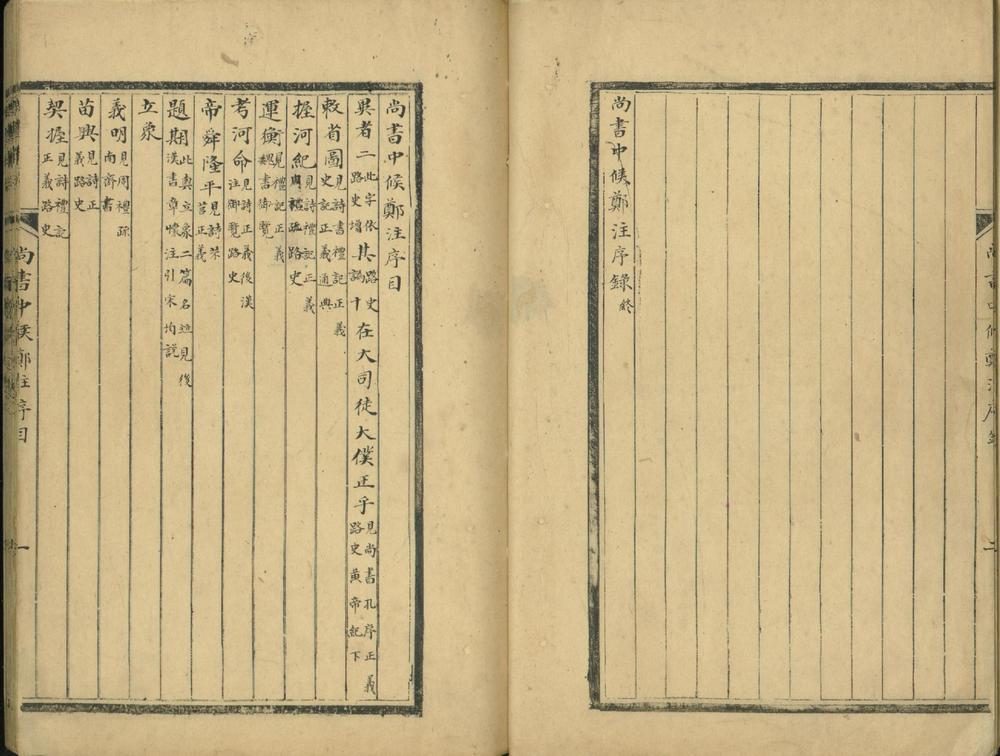 尚書中候鄭注序錄終
尚書中候鄭注序目
昊者二此字依路史增其路史十在大司徒大僕正乎見尚書孔序正義路史黃帝紀下
敕省圖見詩書禮記正義史記正義通典
握河紀見詩禮記正義路史
運衡見禮記正義御覽
考河命見詩正義後漢注御覽路史
帝舜隆平見詩正義
題期此與立象二篇名並見後漢書章懷注引宋均說
立象
義明見周禮疏南齊書
苗興見詩正義路史
契握見詩禮記正義路史
尚書中候鄭注序目
一
二